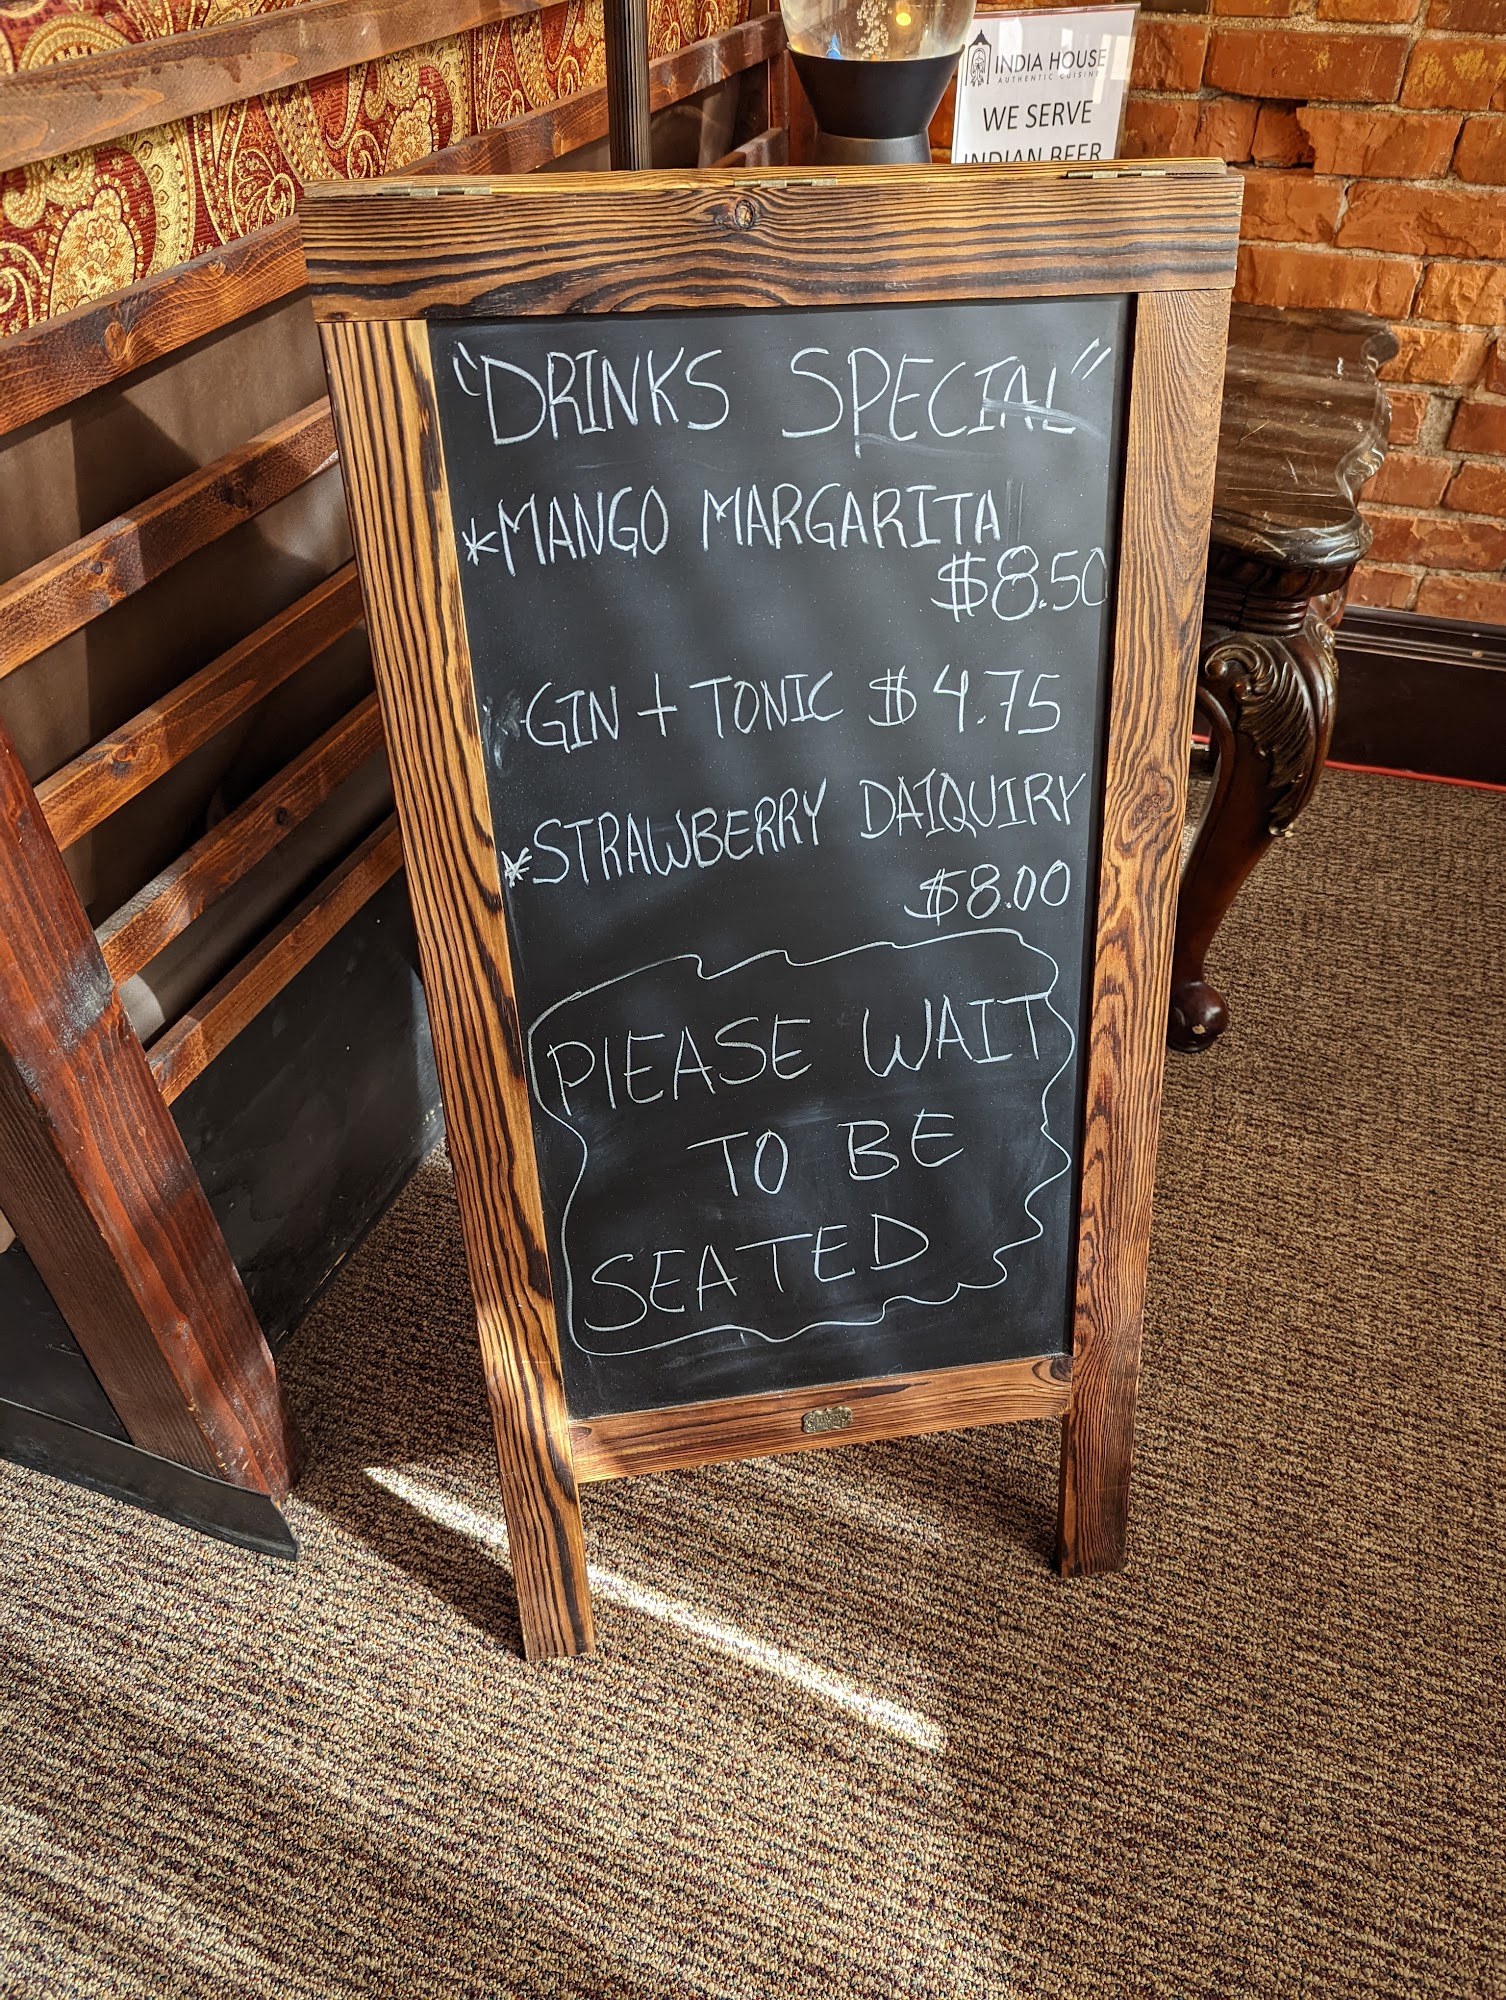 INDIA HOUSE
AUTHENTIC CUISINE
WE SERVE
INDIAN BEER
"DRINKS SPECIAL"
*MANGO MARGARITA
$8.50
GIN + TONIC $4.75
*STRAWBERRY DAIQUIRY
$8.00
PLEASE WAIT
TO BE
SEATED